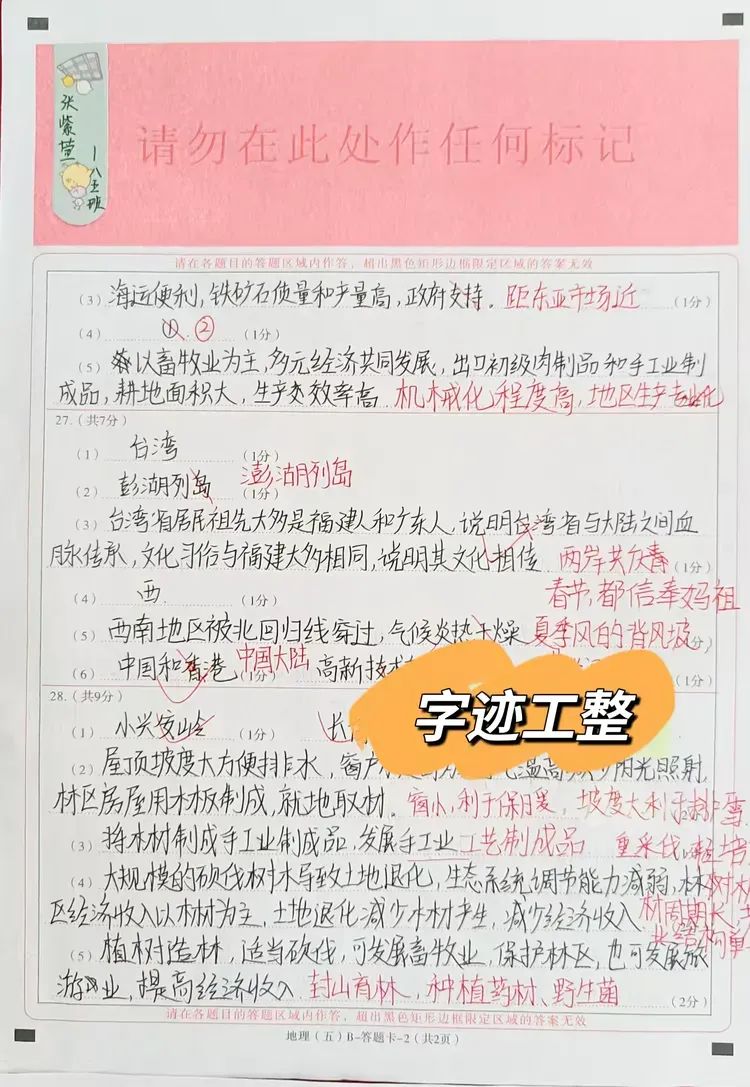 张紫萱
八五班
请勿在此处作任何标记
请在各题目的答题区域内作答，超出黑色矩形边框限定区域的答案无效
(3) 海运便利，铁矿石质量和产量高，政府支持。距东亚市场近 (1分)
(4) ①．② (1分)
(5) 以畜牧业为主，多元经济共同发展，出口初级肉制品和手工业制
成品，耕地面积大，生产效率高 机械化程度高，地区生产专业化
27. (共7分)
(1) 台湾 (1分)
(2) 彭湖列岛 (1分) 澎湖列岛
(3) 台湾省居民祖先大多是福建人和广东人，说明台湾省与大陆之间血
脉传承，文化习俗与福建大多相同，说明其文化相信 两岸共庆春 (1分)
春节，都信奉妈祖
(4) 西 (1分)
(5) 西南地区被北回归线穿过，气候炎热干燥 夏季风的背风坡 分)
(6) 中国和香港 中国大陆 (1分) 高新技术 (1分)
28. (共9分)
字迹工整
(1) 小兴安岭 (1分) 长
(2) 屋顶坡度大方便排水，窗户 温高 阳光照射，
林区房屋用木板制成，就地取材。窗小，利于保暖，坡度大利于排雪
(3) 将木材制成手工业制成品，发展手工业 工艺制成品 重采伐，轻培
(4) 大规模的砍伐树木导致土地退化，生态系统调节能力减弱，林 树木
区经济收入以木材为主，土地退化减少木材产生，减少经济收入 材周期长
结构单
(5) 植树造林，适当砍伐，可发展畜牧业，保护林区，也可发展旅
游业，提高经济收入 封山育林，种植药材、野生菌 (2分)
请在各题目的答题区域内作答，超出黑色矩形边框限定区域的答案无效
地理（五）B-答题卡-2（共2页）